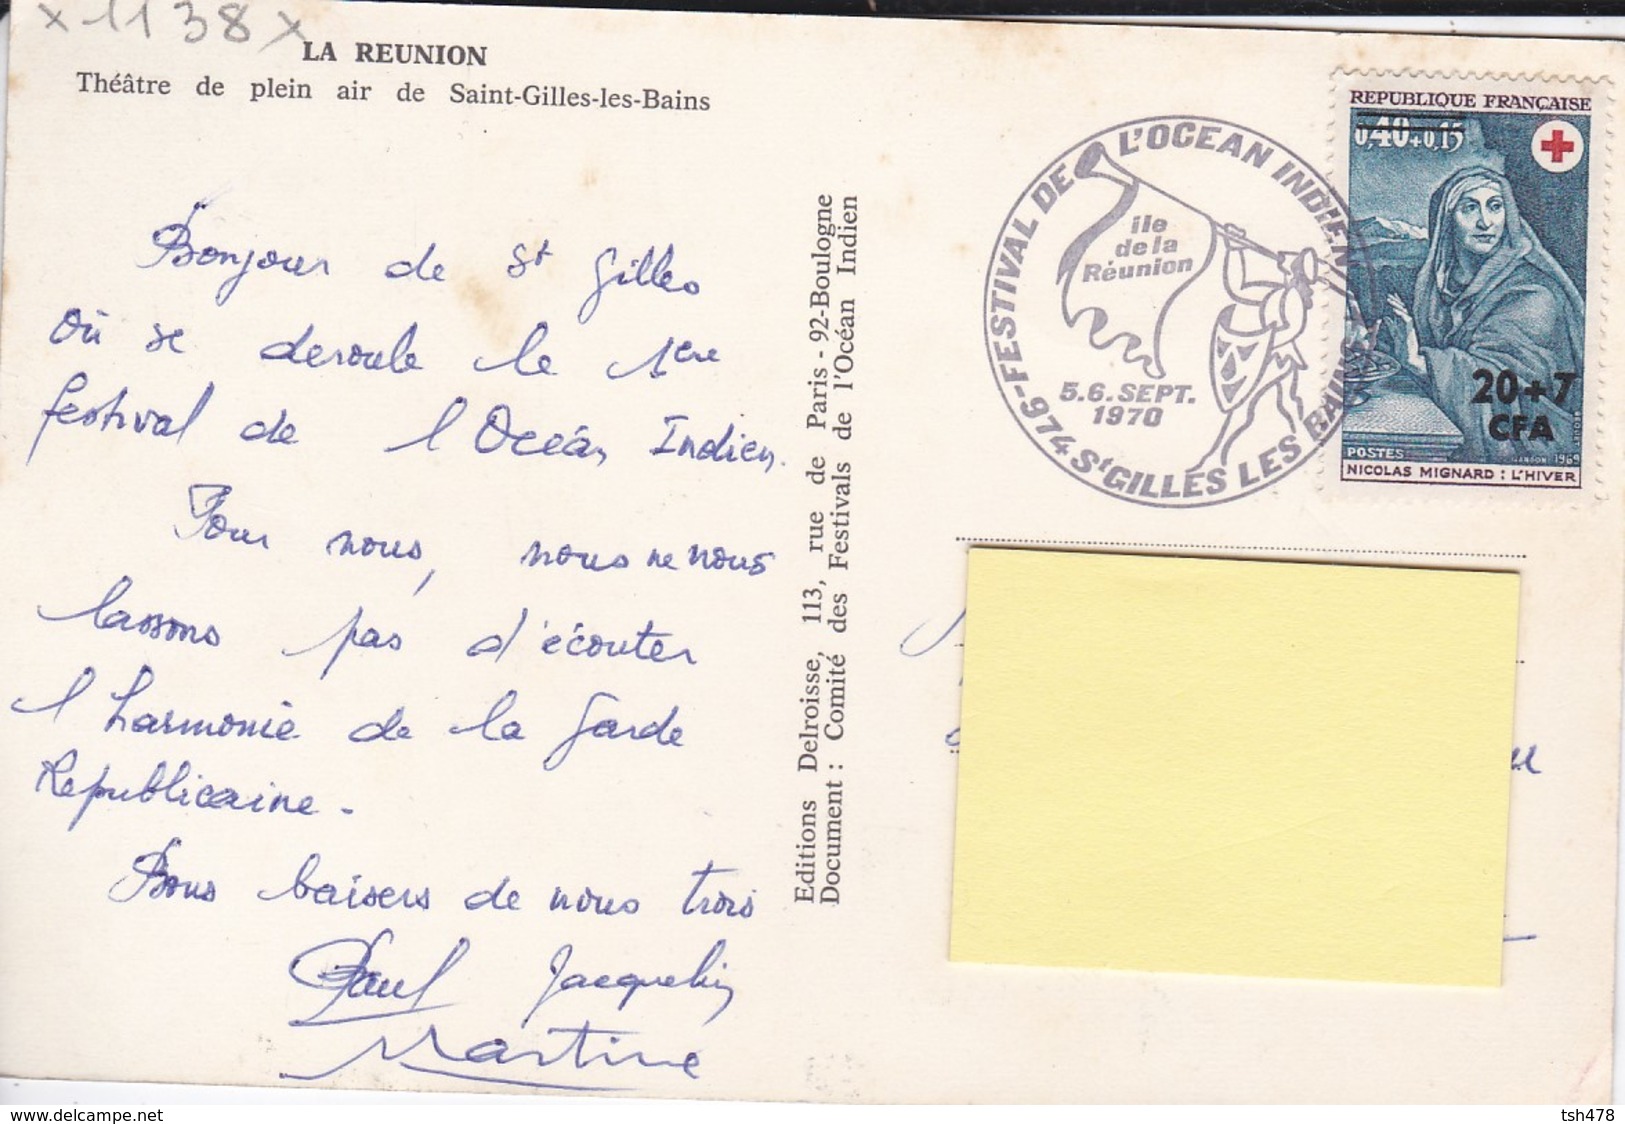 x 1138 x
LA REUNION
Théâtre de plein air de Saint-Gilles-les-Bains
Bonjour de St Gilles
où se deroule le 1ere
festival de l'Océan Indien.
Pour nous, nous ne nous
lassons pas d'écouter
l'harmonie de la Garde
Republicaine -
Bons baisers de nous trois
Paul Jacquelin
Martine
Editions Delroisse, 113, rue de Paris - 92-Boulogne
Document : Comité des Festivals de l'Océan Indien
974-FESTIVAL DE L'OCEAN INDIEN
St GILLES LES BAINS
ile
de la
Réunion
5.6.SEPT.
1970
REPUBLIQUE FRANÇAISE
0,40+0,15
20+7
CFA
POSTES
1969
NICOLAS MIGNARD : L'HIVER
www.delcampe.net
tsh478